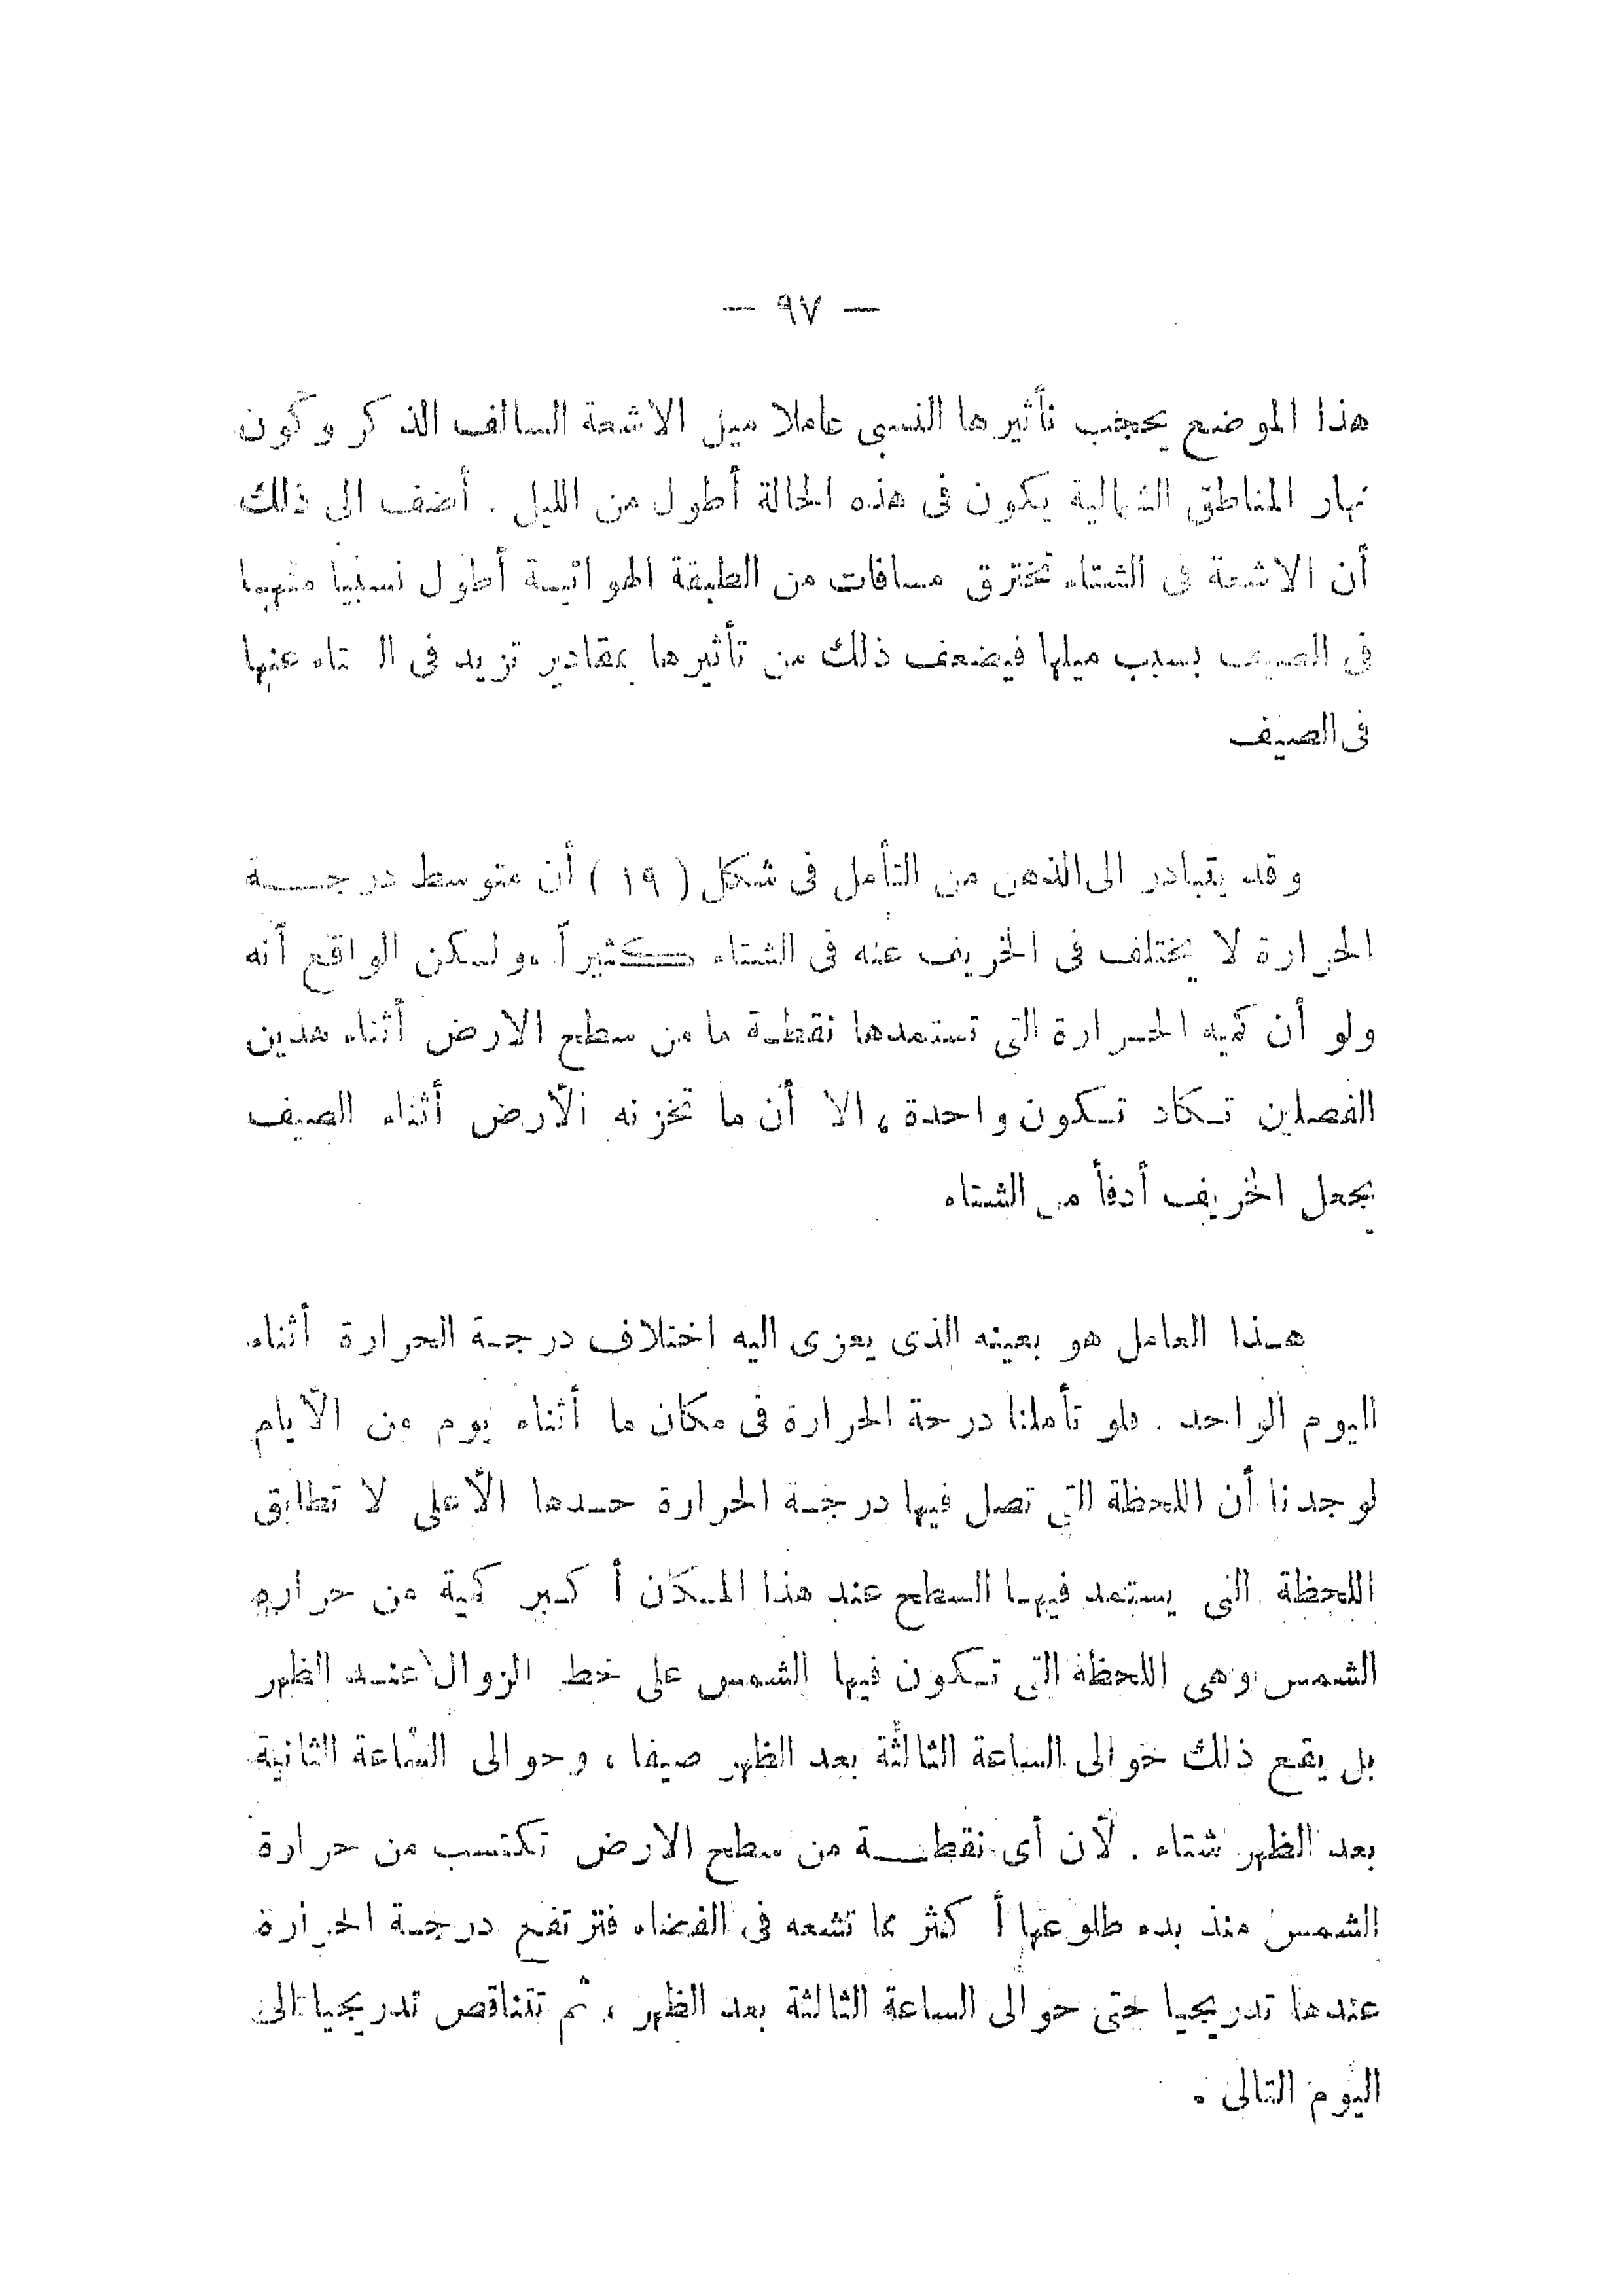 — ٩٧ —
هذا الموضع يحجب تأثيرها النسبى عاملا ميل الاشعة السالف الذكر وكون
نهار المناطق الشمالية يكون فى هذه الحالة أطول من الليل . أضف الى ذلك
أن الاشعة فى الشتاء تخترق مسافات من الطبقة الهوائية أطول نسبيا منها
فى الصيف بسبب ميلها فيضعف ذلك من تأثيرها بمقادير تزيد فى الشتاء عنها
فى الصيف
وقد يتبادر الى الذهن من التأمل فى شكل (١٩) أن متوسط درجة
الحرارة لا يختلف فى الخريف عنه فى الشتاء كثيراً ، ولكن الواقع أنه
ولو أن كميه الحرارة التى تستمدها نقطة ما من سطح الارض أثناء هدين
الفصلين تكاد تكون واحدة ، الا أن ما تخزنه الأرض أثناء الصيف
يجعل الخريف أدفأ من الشتاء
هذا العامل هو بعينه الذى يعزى اليه اختلاف درجة الحرارة أثناء
اليوم الواحد . فلو تأملنا درجة الحرارة فى مكان ما أثناء يوم من الأيام
لوجدنا أن اللحظة التى تصل فيها درجة الحرارة حدها الأعلى لا تطابق
اللحظة التى يستمد فيها السطح عند هذا المكان أكبر كمية من حراره
الشمس وهى اللحظة التى تكون فيها الشمس على خط الزوال عند الظهر
بل يقع ذلك حوالى الساعة الثالثة بعد الظهر صيفا ، وحوالى الساعة الثانية
بعد الظهر شتاء . لأن أى نقطة من سطح الارض تكتسب من حرارة
الشمس منذ بدء طلوعها أكثر مما تشعه فى الفضاء فترتفع درجة الحرارة
عندها تدريجيا حتى حوالى الساعة الثالثة بعد الظهر ، ثم تتناقص تدريجيا الى
اليوم التالى .